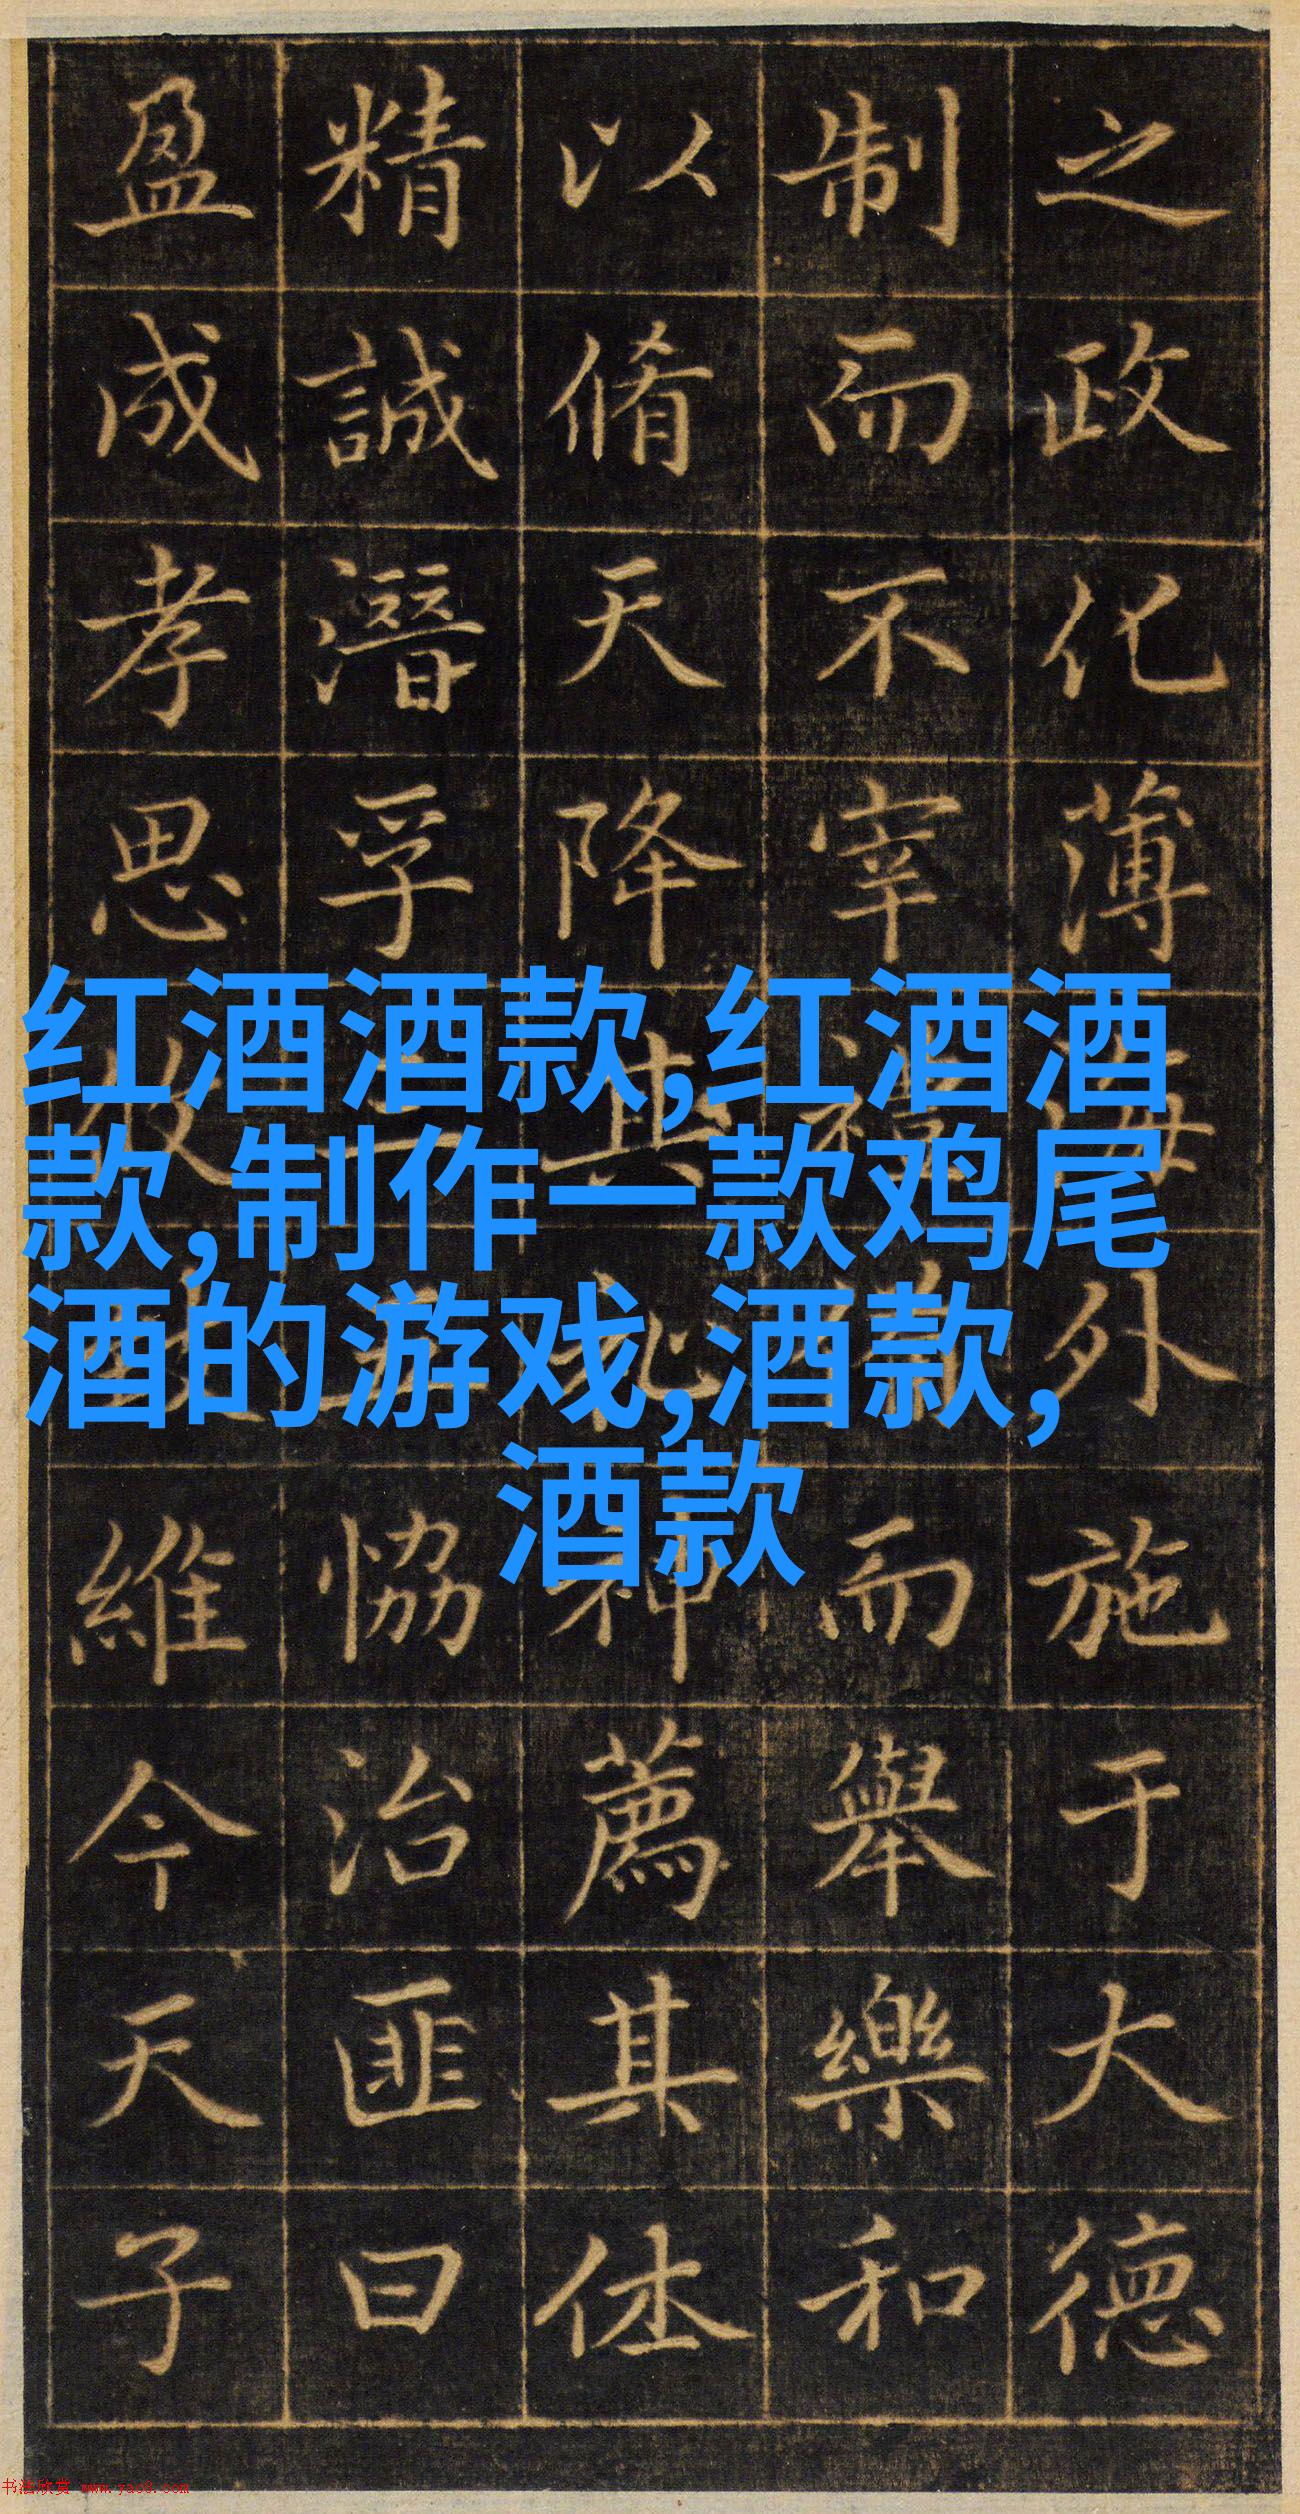 之政化薄海外施于大德
制而不宰而舉樂和
以脩天降神薦其休
精誠潛孚恊治匪曰
盈成孝思維今天子
红酒酒款,红酒酒
款,制作一款鸡尾
酒的游戏,酒款,
酒款
书法欣赏 www.yac8.com